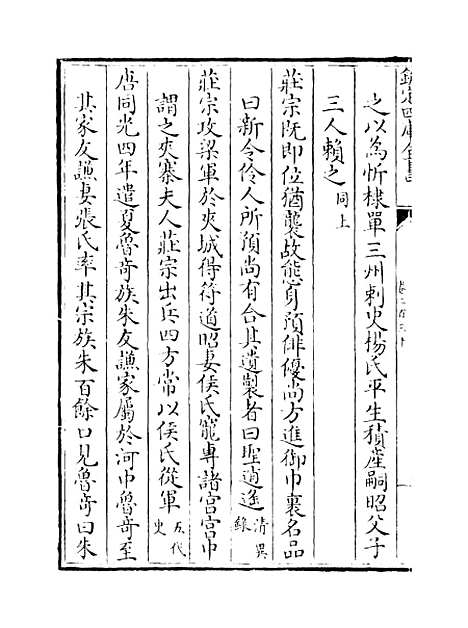 欽定四庫全書
之以為忻棣單三州刺史楊氏平生積產嗣昭父子
三人賴之同上
莊宗既即位猶襲故態身預俳優尚方進御巾裹名品
曰新令伶人所預尚有合其遺製者曰聖逍遙清異錄
莊宗攻梁軍於夾城得符道昭妻侯氏寵專諸宫宫中
謂之夾寨夫人莊宗出兵四方常以侯氏從軍五代史
唐同光四年遣夏魯奇族朱友謙家屬於河中魯奇至
其家友謙妻張氏率其宗族朱百餘口見魯奇曰朱